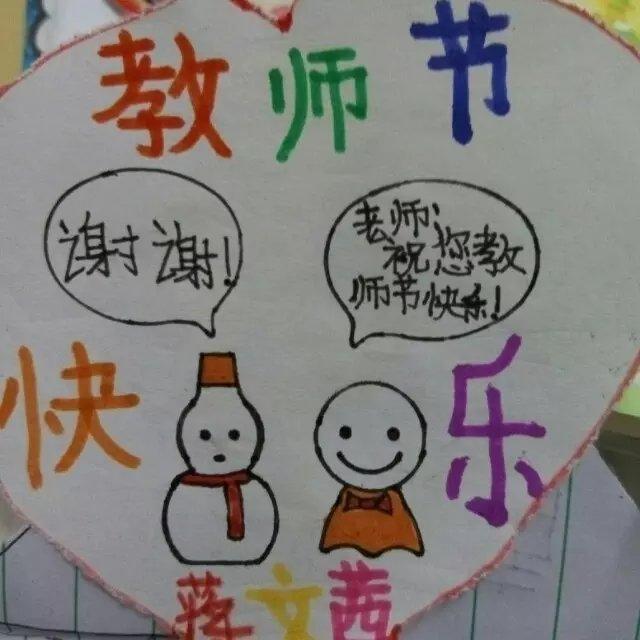 教师节
谢谢!
老师:
祝您教
师节快乐!
快乐
蒋文茜